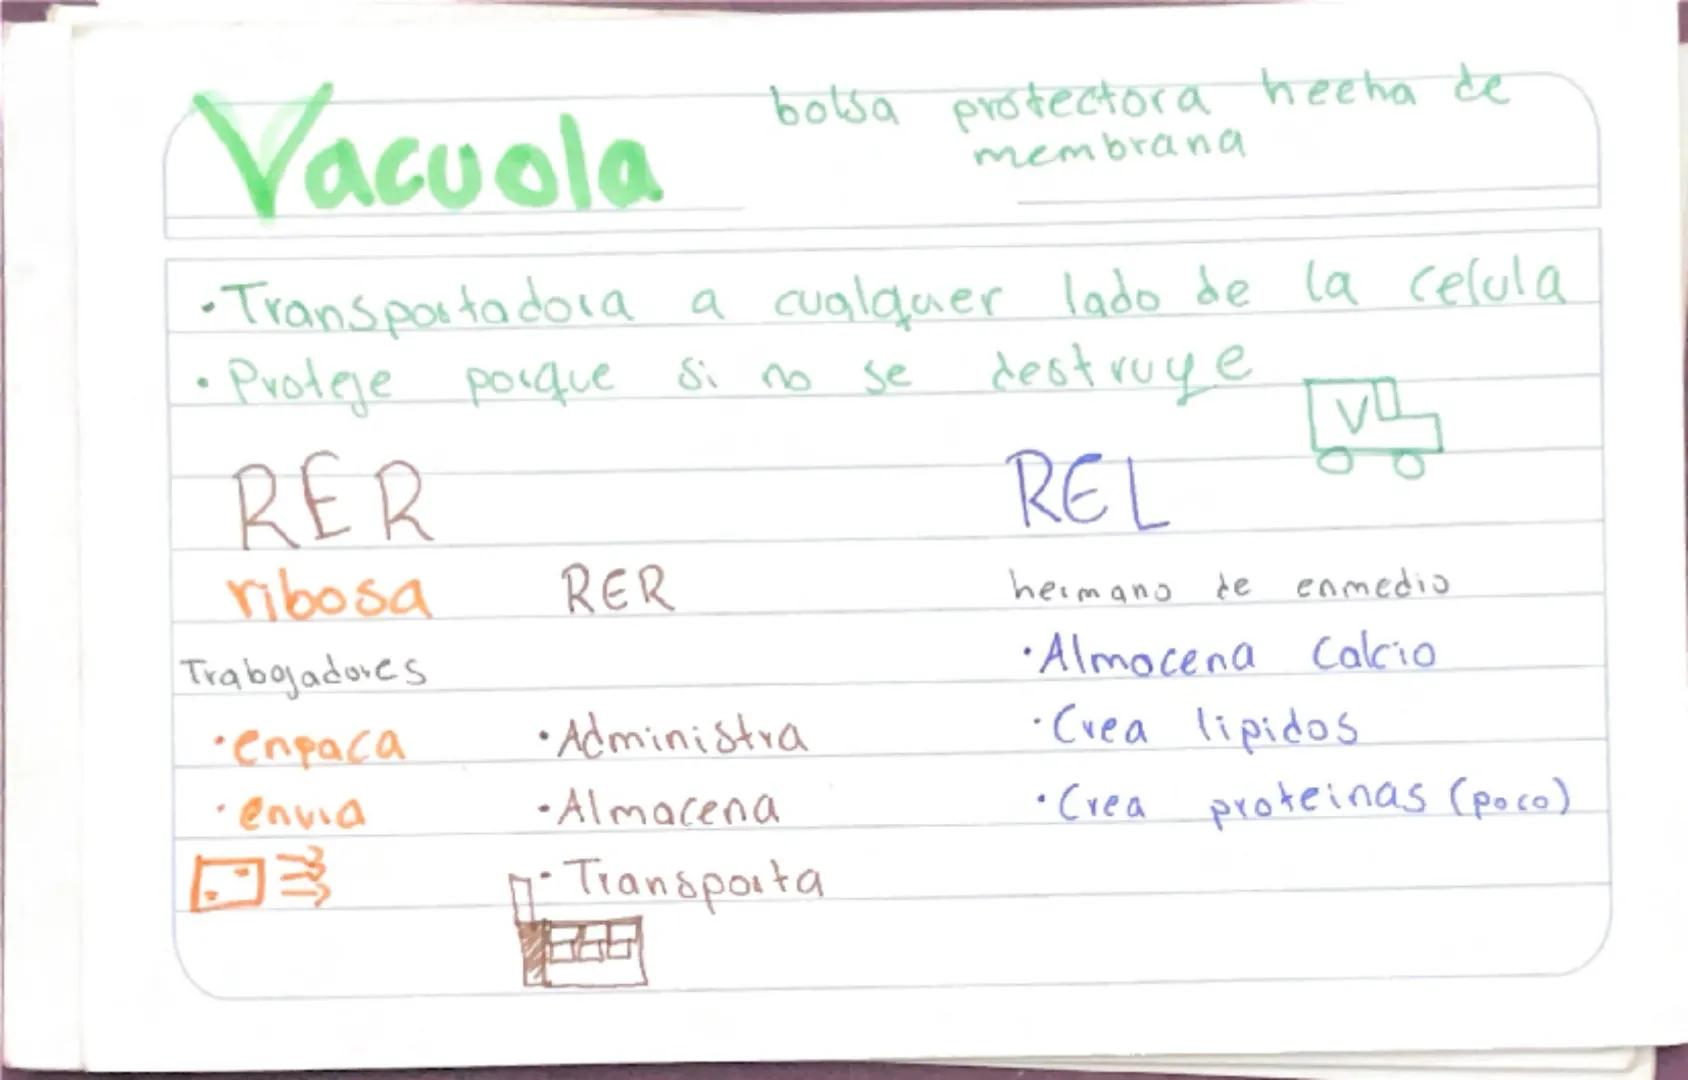 Vacuola
bolsa protectora hecha de
membrana
• Transportadora a cualquier lado de la celula
• Proteje porque si no se destruye
V
RER REL
ribosa RER hermano de enmedio
Trabajadores • Almacena Calcio
• enpaca • Administra • Crea lipidos
• envia • Almacena • Crea proteinas (poco)
• Transporta